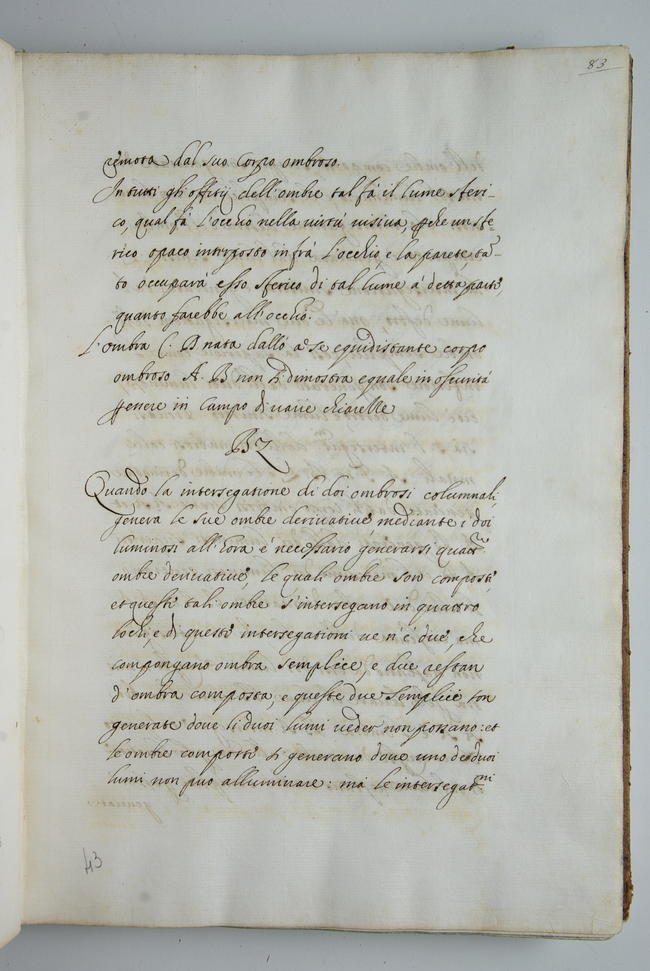 83
remota dal suo Corpo ombroso.
In tutti gli offitij dell'ombre tal fà il lume sferi-
co, qual fà l'occhio nella virtù visiva, perche un sfe-
rico opaco interposto infrà l'occhio, e la parete, tan-
to occuparà esso sferico di tal lume à detta pariete,
quanto farebbe all'occhio.
L'ombra C. D nata dallo à se equidistante corpo
ombroso A. B non si dimostra equale in oscurità
per essere in Campo di varie chiarezze
B2
Quando la intersegatione di doi ombrosi columnali,
genera le sue ombre derivative, mediante i doi
luminosi all'hora è necessario generarsi quattro
ombre derivative, le quali ombre son composte,
et queste tali ombre s'intersegano in quattro
lochi, e di queste intersegationi ve n'è due, che
compongano ombra semplice, e due restan
d'ombra composta, e queste due semplici son
generate dove li duoi lumi veder non possano: et
le ombre composte si generano dove uno de duoi
lumi non puo alluminare: mà le intersegatni
43